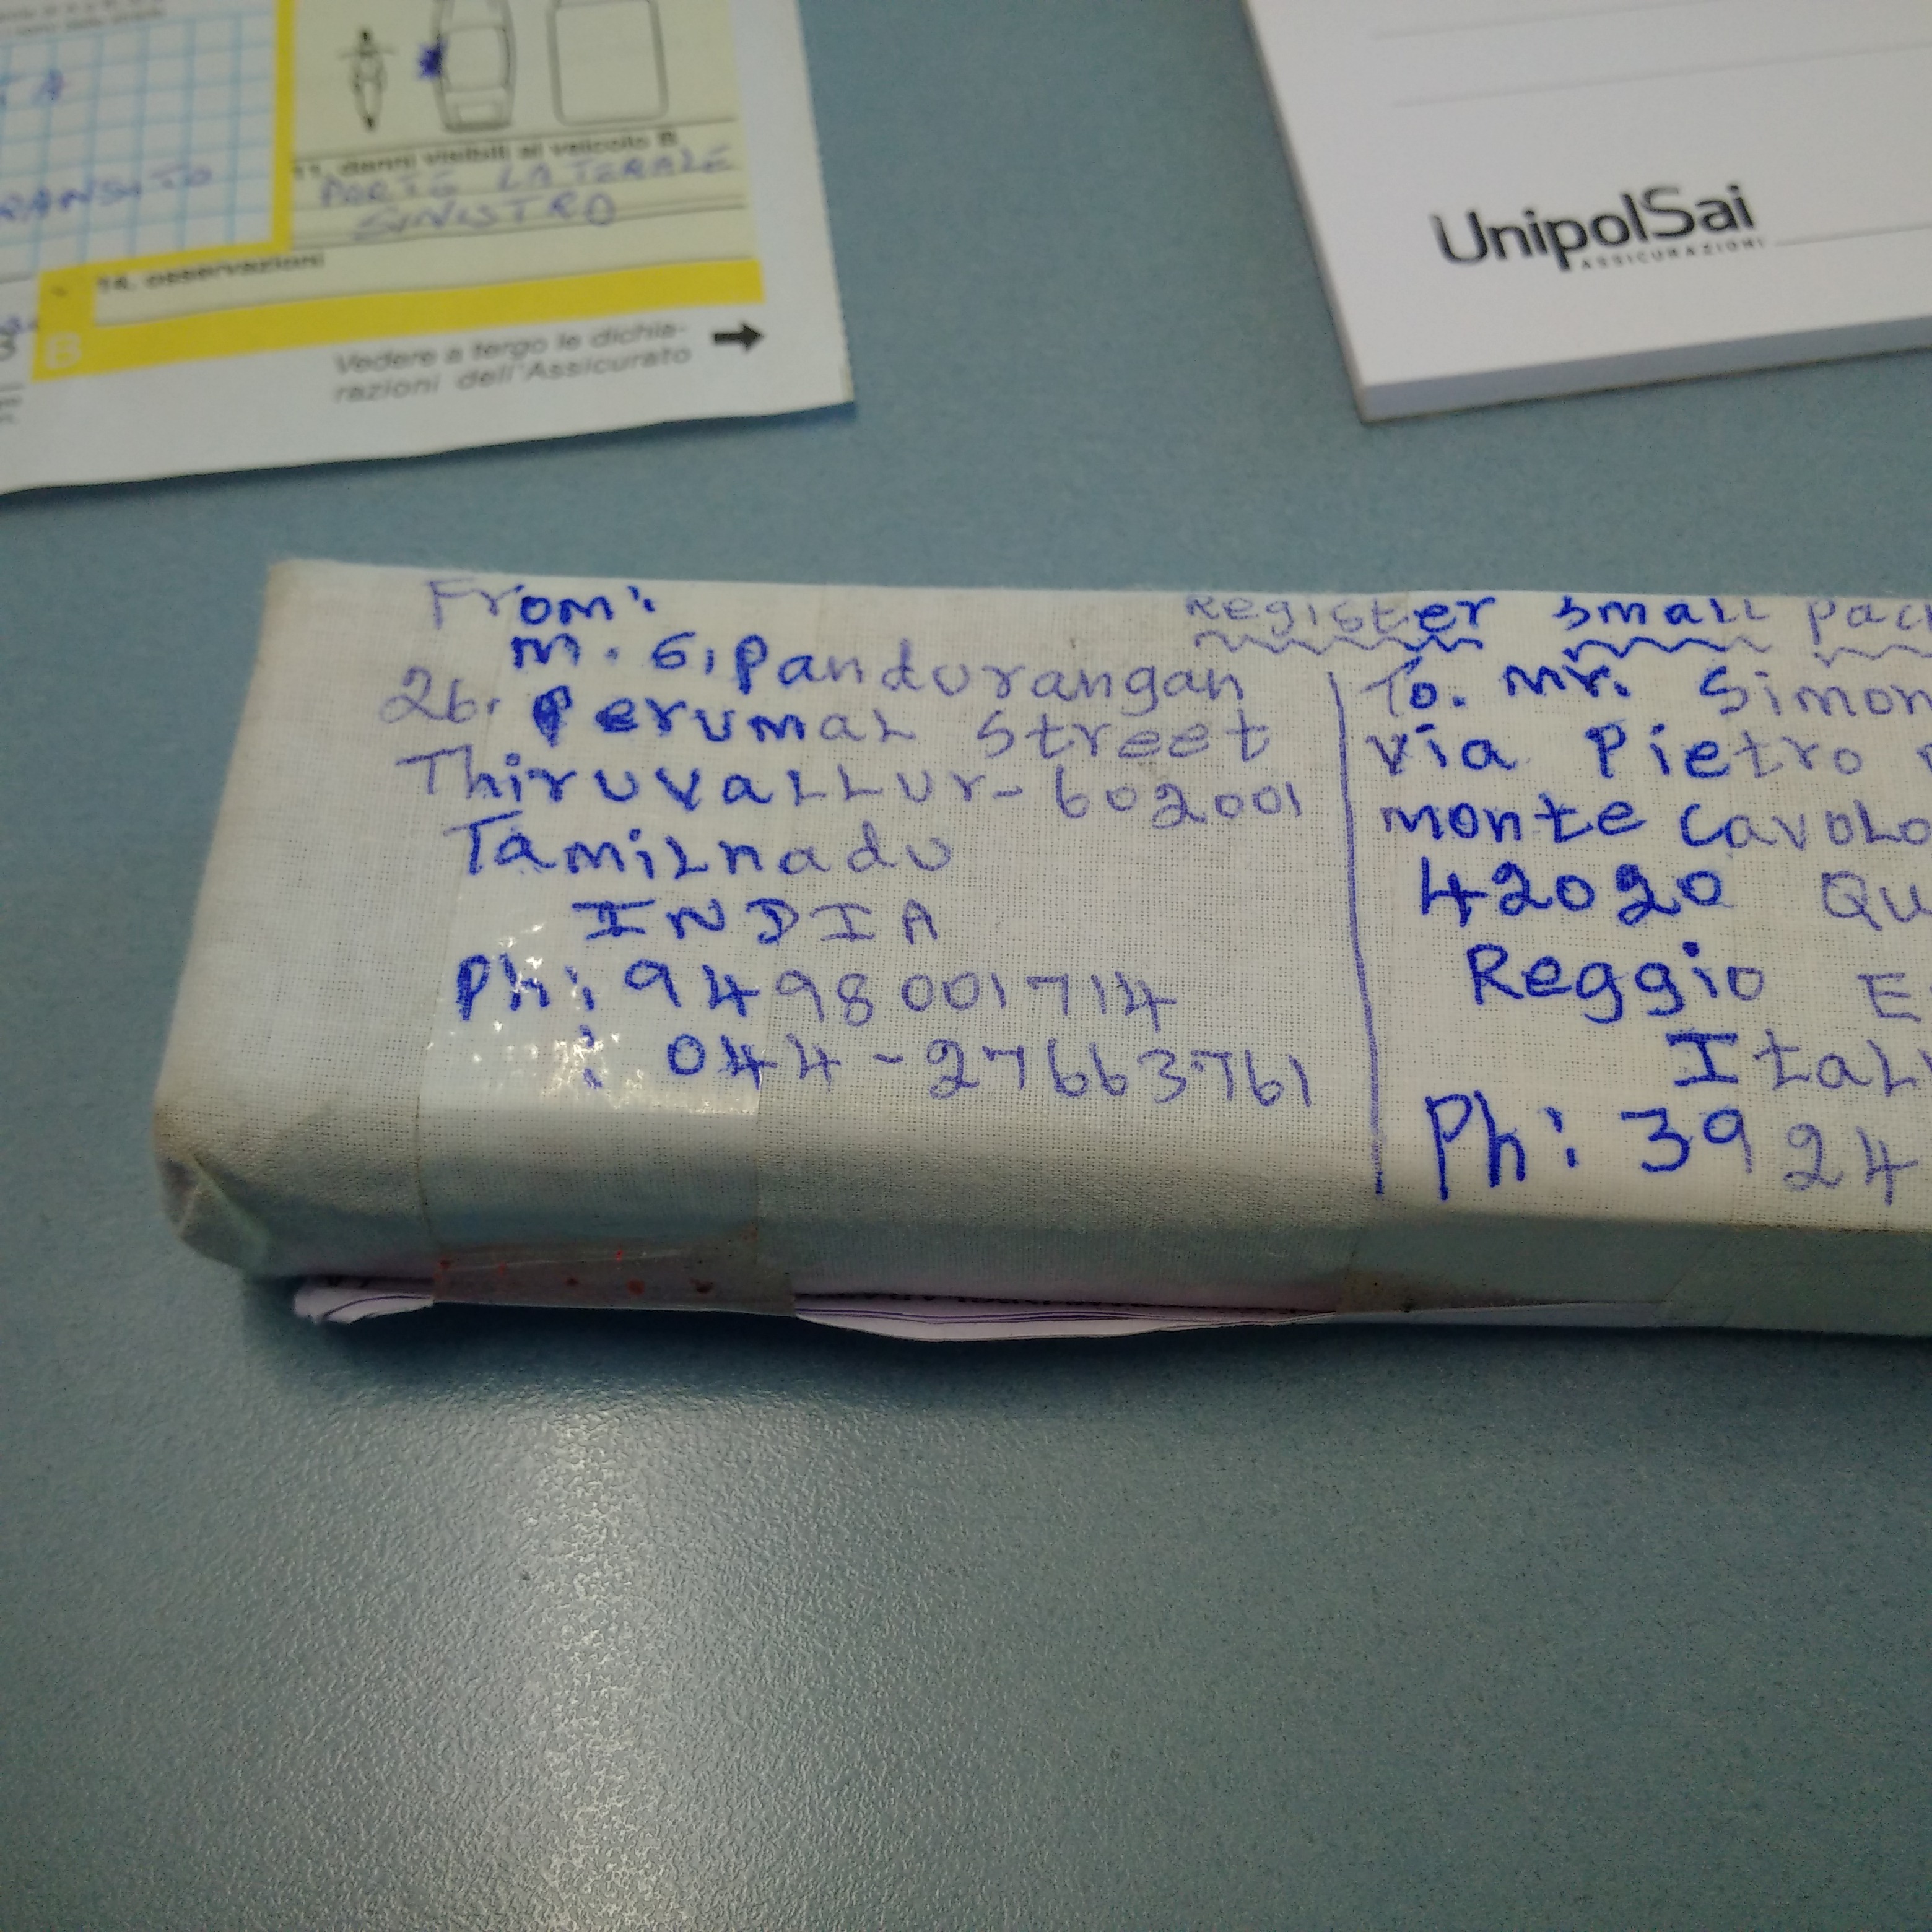 RANSITO
11. danni visibili al veicolo B
PORTE LATERALE
SINISTRO
14. osservazioni
B
Vedere a tergo le dichia-
razioni dell'Assicurato
UnipolSai
ASSICURAZIONI
From:
M. G, Pandurangan
26. Perumal Street
Thiruvallur - 602001
Tamilnadu
INDIA
Ph: 9498001714
: 044-27663761
Register Small pac
To. Mr. Simon
Via Pietro
Monte Cavolo
42020 Qu
Reggio E
Italy
Ph: 3924